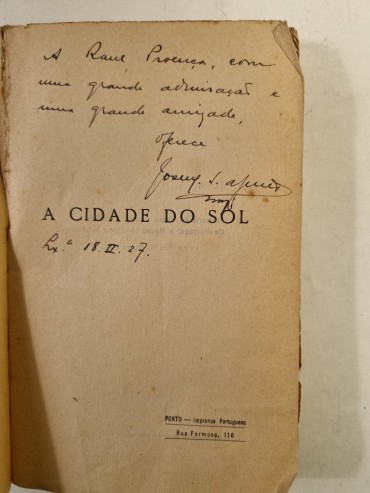 A Raul Proença, com
uma grande admiração e
uma grande amizade,
oferece
A CIDADE DO SOL
Lx.ª 18. II. 27.
PORTO — Imprensa Portuguesa
Rua Formosa, 116